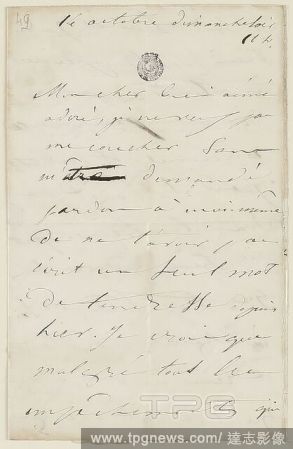 49
14 octobre dimanche soir
11 h.
Mon cher bien aimé
adoré, je ne veux pas
me coucher sans
m'être demandé
pardon à moi-même
de ne t'avoir pas
écrit un seul mot
de tendresse depuis
hier. Je crois que
malgré tout les
empêchements qui
TPG
www.tpgnews.com / 達志影像